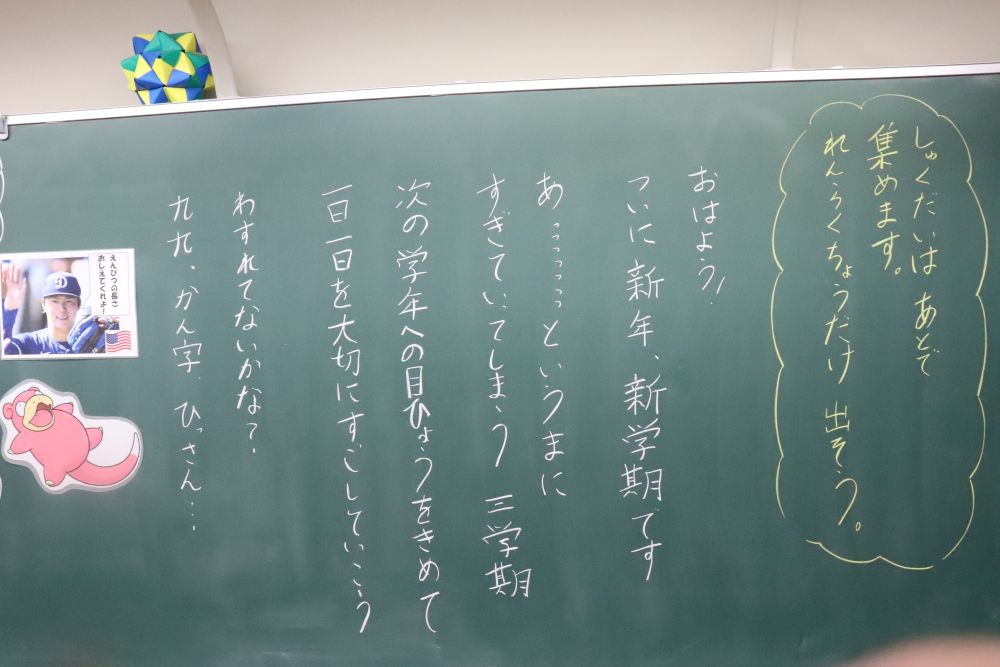 しゅくだいは あとで
集めます。
れんらくちょうだけ 出そう。
おはよう!
ついに新年、新学期です
あっっっっっっというまに
すぎていってしまう 三学期
次の学年への目ひょうをきめて
一日一日を大切にすごしていこう
わすれてないかな?
九九、かん字、ひっさん…
えんぴつの長さ
おしえてくれよ!
D